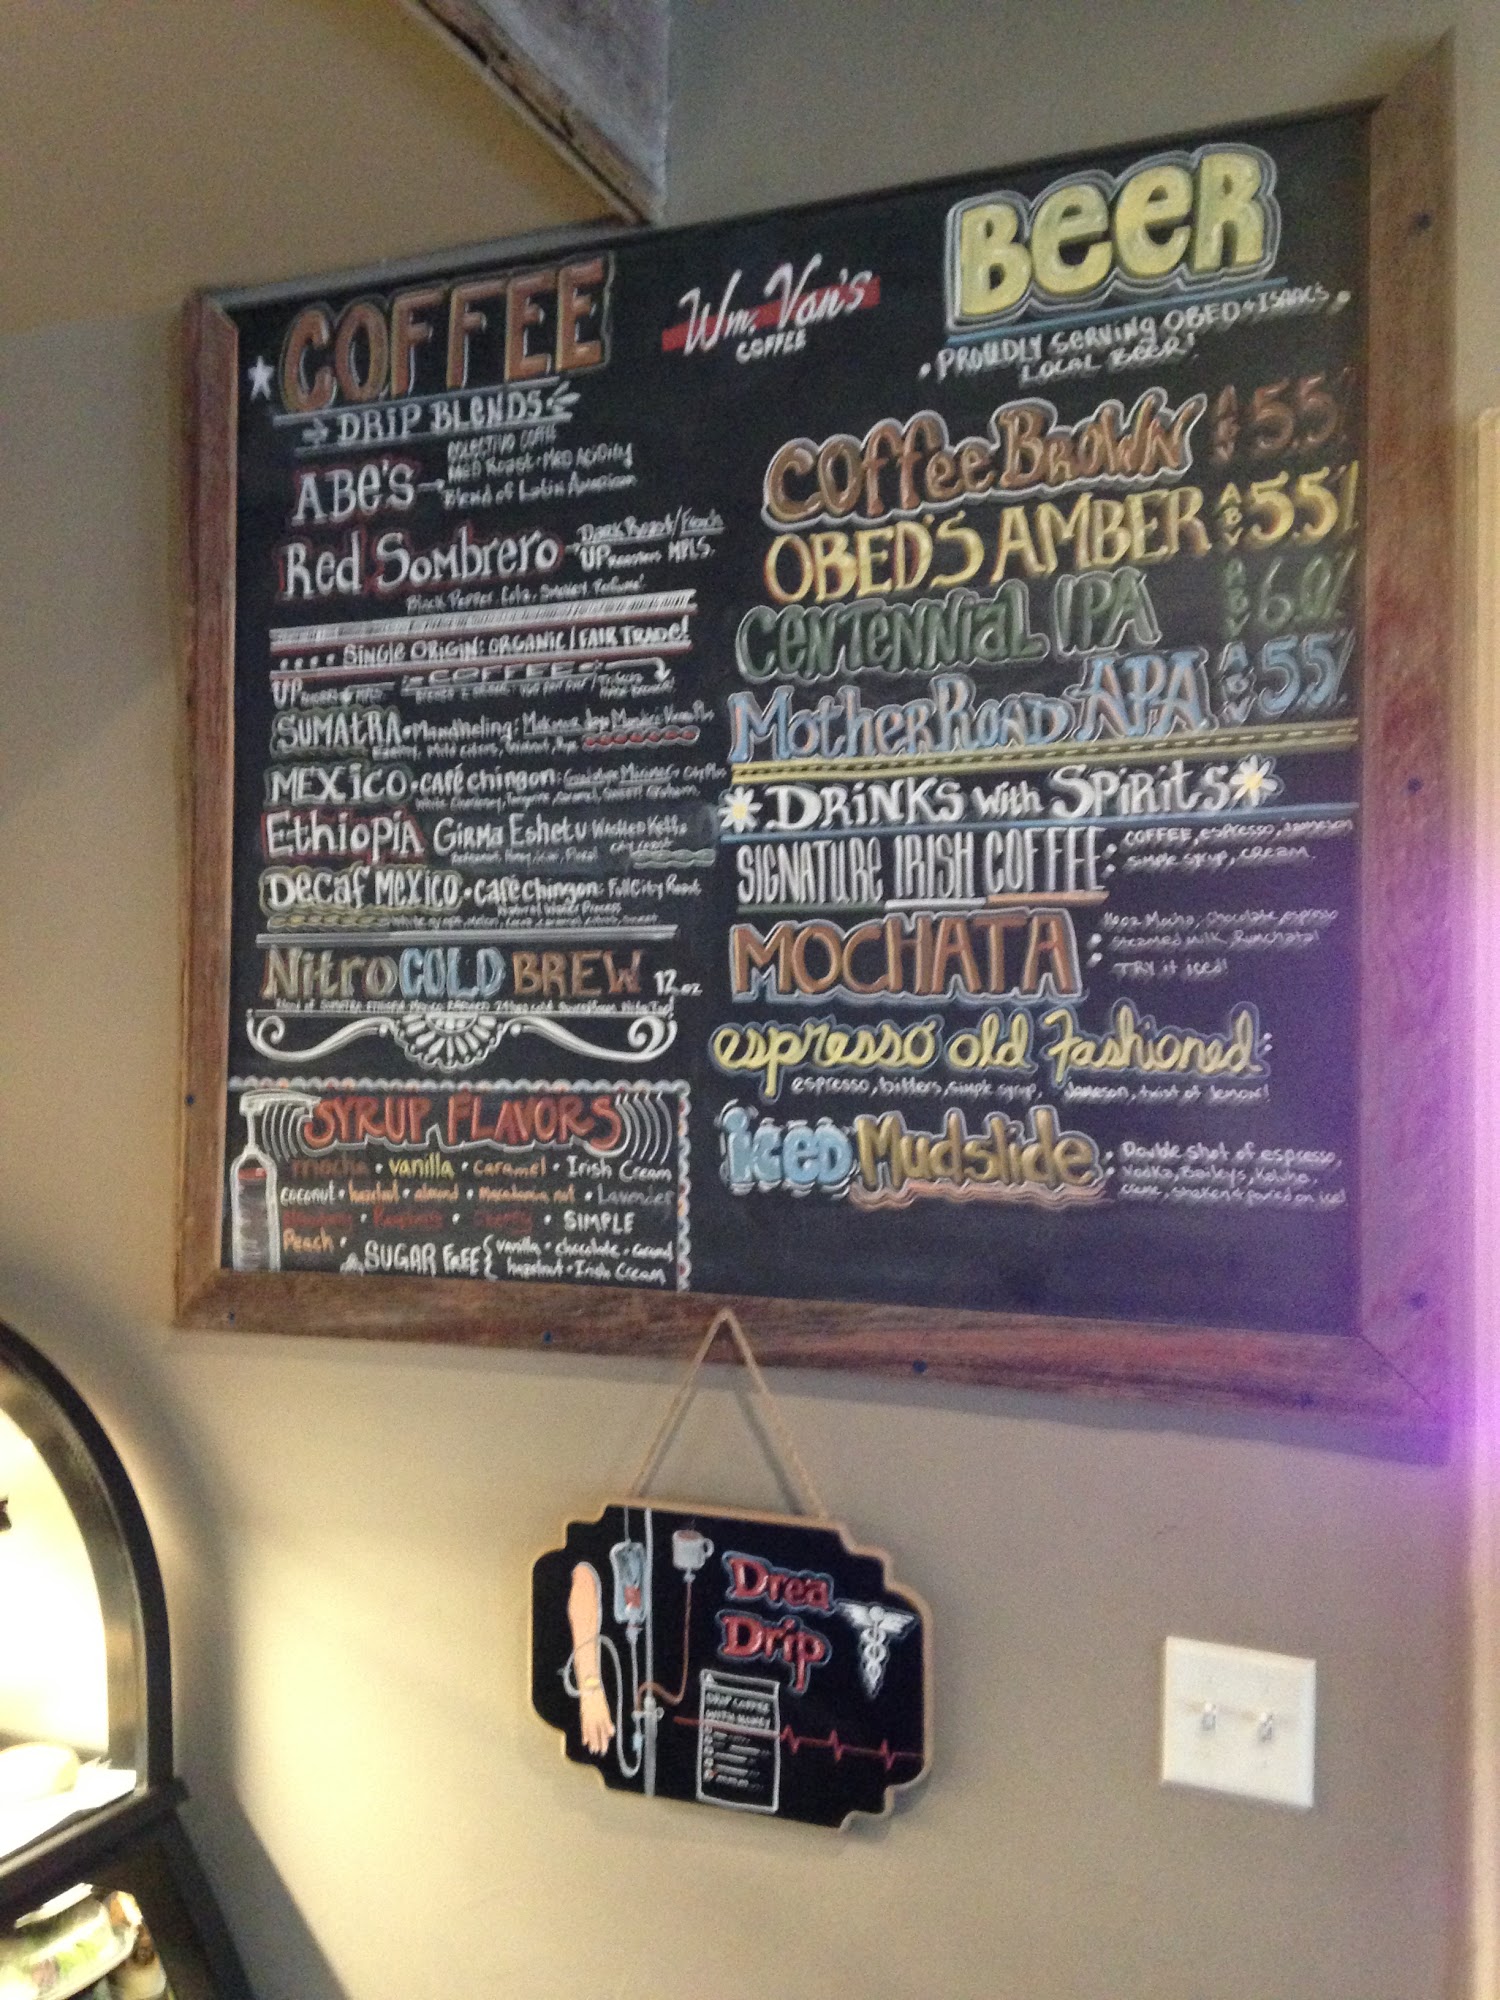 COFFEE
DRIP BLENDS
ABe's
COLECTIVO COFFEE
MED Roast • MED Acidity
Blend of Latin American
Red Sombrero
Dark Roast/French
UP Roasters MPLS.
Black Pepper, Cola, Smokey Perfume!
SINGLE ORIGIN: ORGANIC/FAIR TRADE!
COFFEE
UP
SUMATRA • Mandheling:
MEXICO • café chingon:
Ethiopia Girma Eshetu Washed
Decaf Mexico • café chingon: Full City Roast
Natural Water Process
Nitro COLD BREW 12oz
SYRUP FLAVORS
mocha • vanilla • caramel • Irish Cream
coconut • hazelnut • almond • macadamia nut • Lavender
• SIMPLE
Peach •
SUGAR FREE { vanilla • chocolate • caramel
hazelnut • Irish Cream
Wm. Van's
COFFEE
Beer
• PROUDLY SERVING OBED & ISAAC'S •
LOCAL BEER!
Coffee Brown ABV 5.5%
OBED'S AMBER ABV 5.5%
Centennial IPA ABV 6.0%
MotherRoad APA ABV 5.5%
DRINKS with SPIRITS
SIGNATURE IRISH COFFEE: COFFEE, espresso, Jameson
simple syrup, cream.
MOCHATA : 16oz Mocha, Chocolate, espresso
steamed milk, Rumchata!
TRY it iced!
espresso old Fashioned:
espresso, bitters, simple syrup, Jameson, twist of lemon!
iced Mudslide : Double shot of espresso,
Vodka, Baileys, Kahlua,
creme, shaken & poured on ice!
Drea
Drip
DRIP COFFEE
WITH HONEY